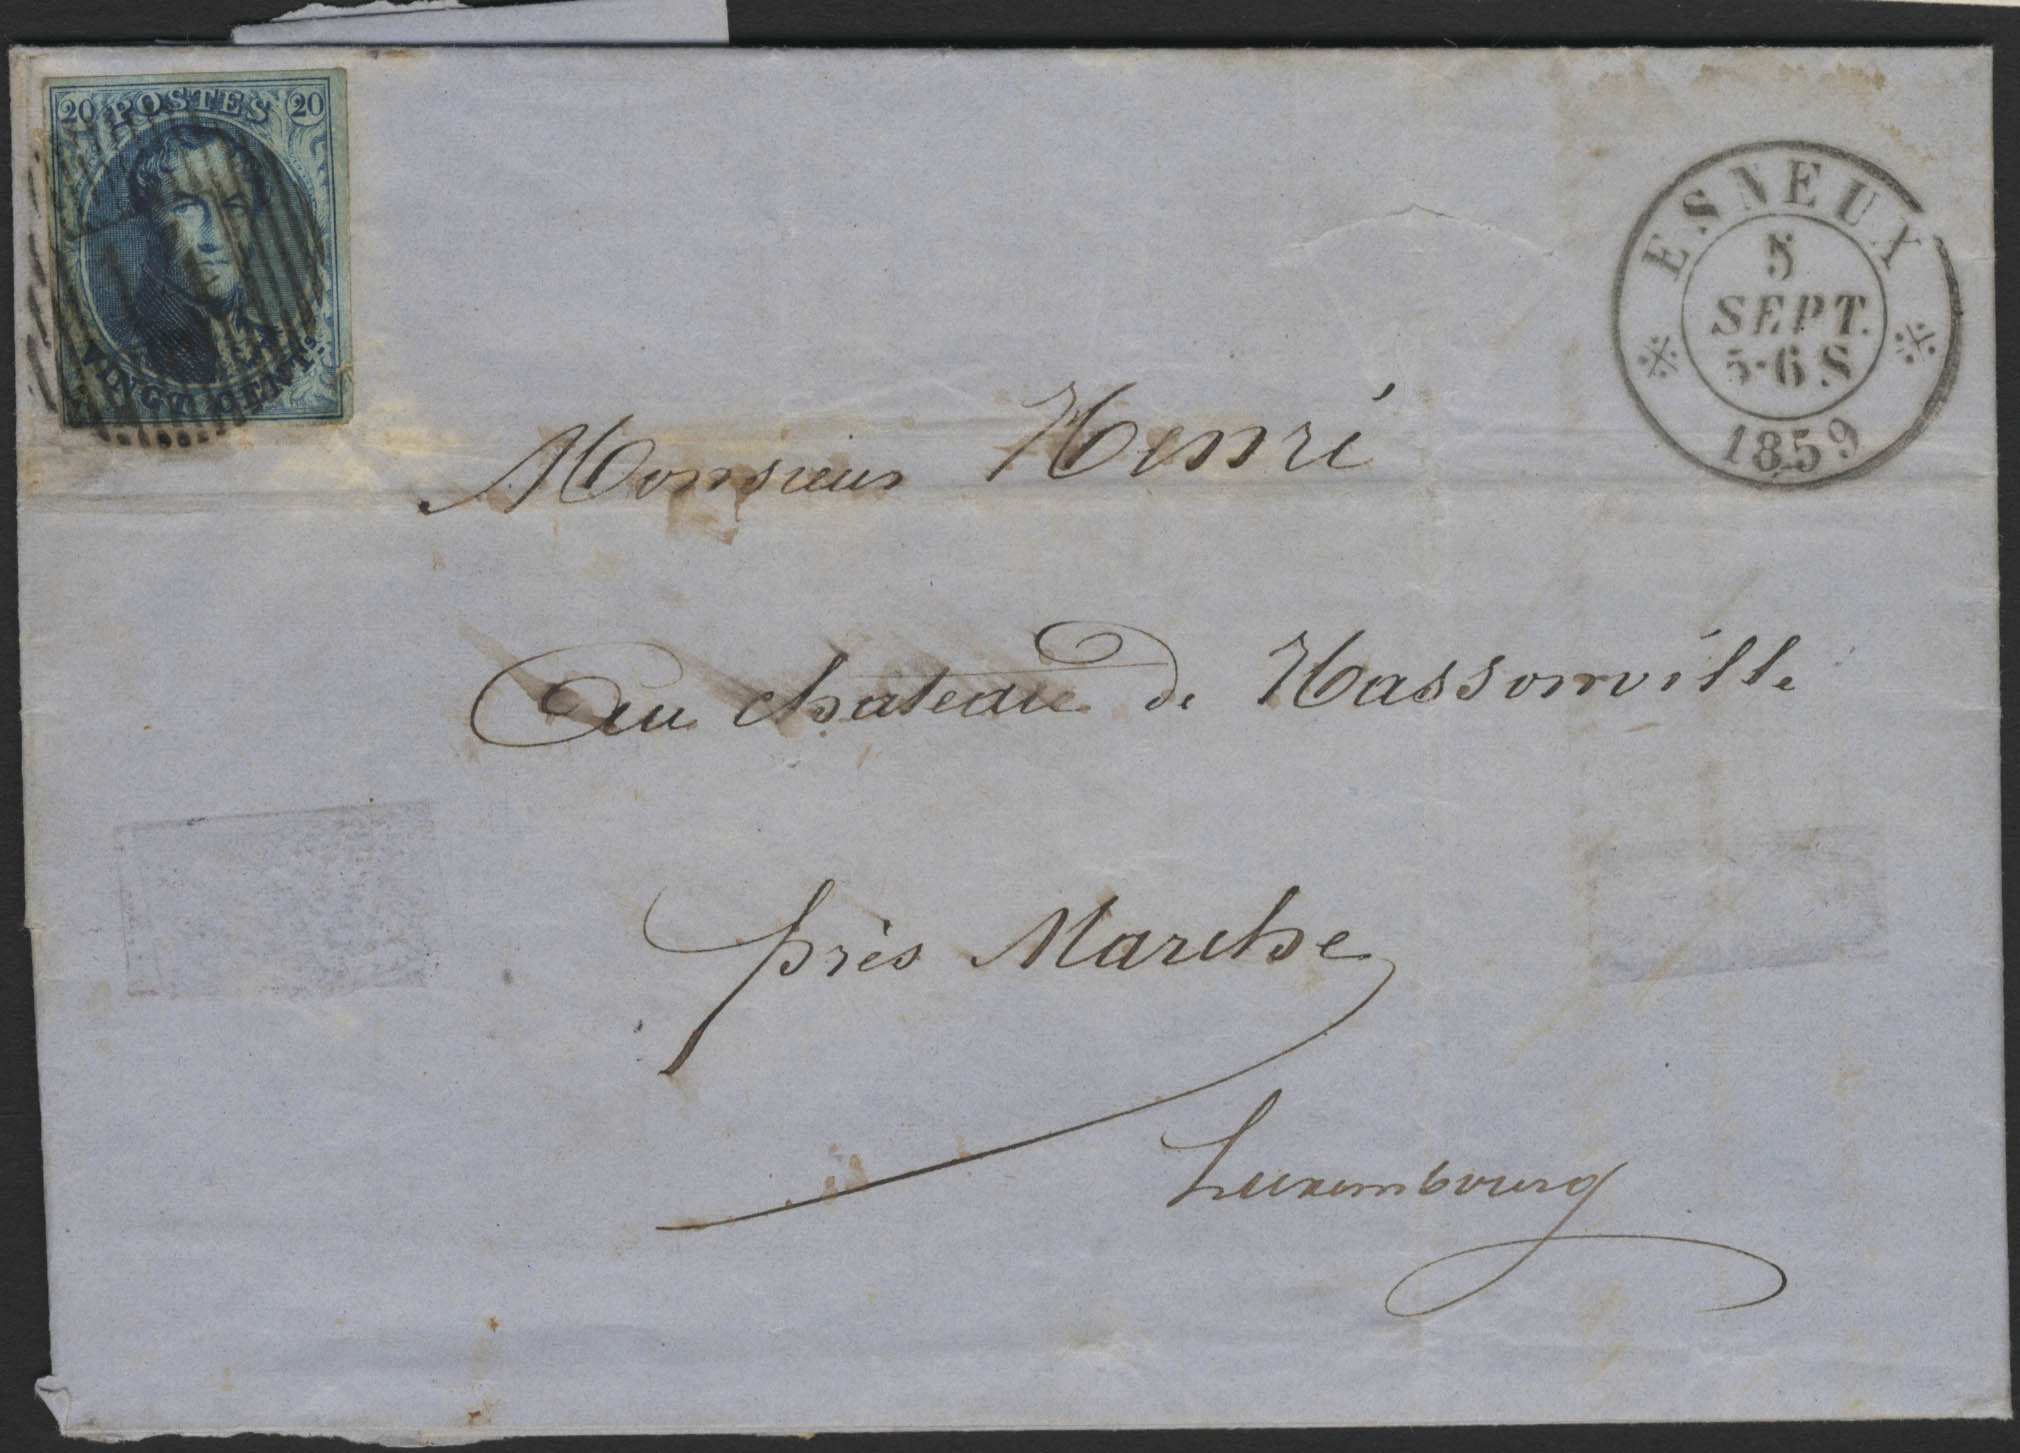 20 POSTES 20
VINGT CENTS.
ESNEUX
5
SEPT.
5-6 S
1859
Monsieur Henri
Au chateau de Hassonville
près Marche
Luxembourg